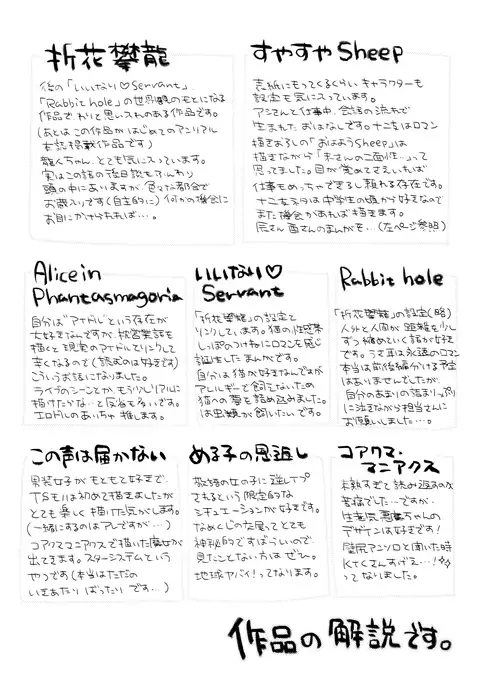 折花攀龍
後の「いいなり♡Servant」、
「Rabbit hole」の世界観のもとになる
作品で、わりと思い入れのある作品です。
(あとはこの作品がはじめてのアンリアル
本誌掲載作品です)
龍くんちゃん、とても気に入っています。
実はこの話の後日談もふんわり
頭の中にありますが、色々な都合で
お蔵入りです(自主的に)何かの機会に
お目にかけられれば…。
すやすやSheep
表紙にもってくるくらいキャラクターも
設定も気に入っています。
アシさんと仕事中、会話の流れで
生まれたおはなしです。十二支はロマン
描きおろしの「おはようSheep」は
描きながら「未さんの二面性…」って
思ってました。目が覚めてさえいれば
仕事もめっちゃできるし頼れる存在です。
十二支ネタは中学生の頃から好きなので
また機会があれば描きます。
辰さん酉さんのまんがも…(左ページ参照)
Alice in
Phantasmagoria
自分は"アイドル"という存在が
大好きなんですが、枕営業話を
描くと現実のアイドルとリンクして
辛くなるので(読むのは好きです)
こういうお話になりました。
ライブのシーンとか、もう少しリアルに
描けたかな…と反省も多いです。
エロドルのありちゃ推します。
いいなり♡
Servant
「折花攀龍」の設定と
リンクしています。猫の性感帯
しっぽのつけ根にロマンを感じ
誕生したまんがです。
自分は猫が好きなんですが
アレルギーで飼えないため
猫への夢を詰め込みました。
は虫類が飼いたいです。
Rabbit hole
「折花攀龍」の設定(略)
人外と人間が距離を少し
ずつ縮めていく話が好き
です。うさ耳は永遠のロマン
本当は前後編分ける予定
はありませんでしたが、
自分のあまりの詰まりっぷり
に泣きながら担当さんに
お願いしました…。
この声は届かない
男装女子がもともと好きで、
TSものは初めて描きましたが
とても楽しく描けた気がします。
(一緒にするのはアレですが…)
コアクママニアクスで描いた魔女が
出てきます。スターシステムという
やつです(本当はただの
いきあたりばったりです…)
める子の恩返し
敬語の女の子に逆レイプ
されるという限定的な
シチュエーションが好きです。
なめくじの交尾ってとても
神秘的ですばらしいので
見たことない方はぜひ。
地球ヤバイ!ってなります。
コアクマ・
マニアクス
苦痛でした…ですが、
生意気悪魔ちゃんの
デザインは好きです!
壁尻アンソロと聞いた時
KTCさんすげえ…!
ってなりました。
作品の解説です。